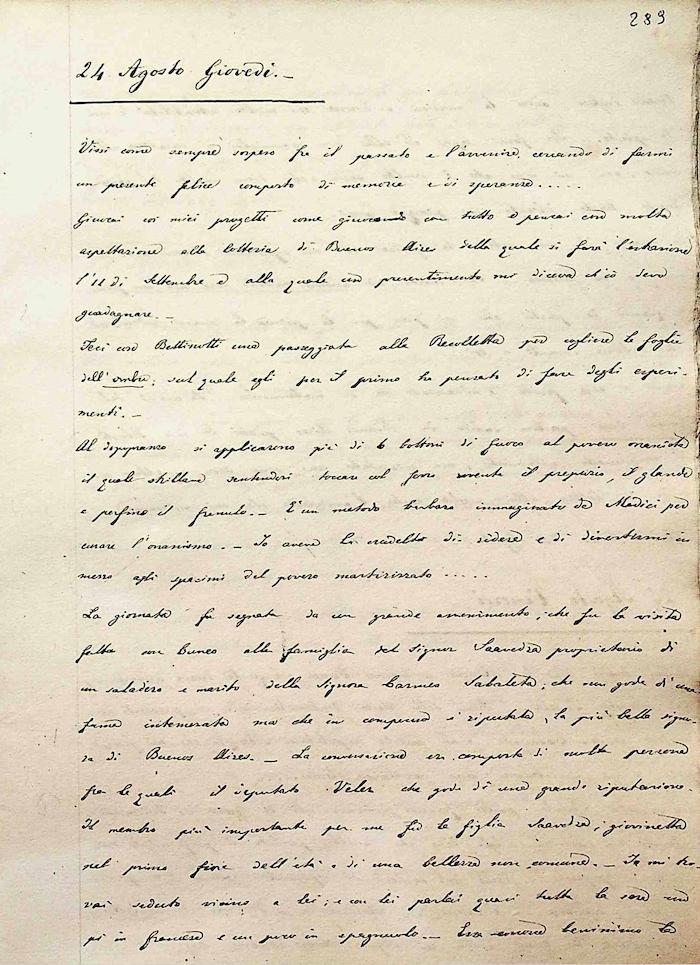 289
24 Agosto Giovedì. —
Vissi come sempre sospeso fra il passato e l'avvenire, cercando di farmi
un presente felice composto di memorie e di speranze.....
Giuocai coi miei progetti come giuocando con tutto e pensai con molta
aspettazione alla lotteria di Buenos Aires della quale si farà l'estrazione
l'11 di Settembre e alla quale un presentimento mi diceva ch'io devo
guadagnare. —
Feci con Bettinotti una passeggiata alla Recolletta per cogliere le foglie
dell'ombu, sul quale egli per il primo ha pensato di fare degli esperi-
menti. —
Al dopopranzo si applicarono più di 6 bottoni di fuoco al povero onanista
il quale strillava sentendosi toccare col ferro rovente il prepuzio, il glande
e perfino il frenulo. — È un metodo barbaro immaginato da Medici per
curare l'onanismo. — Io aveva la crudeltà di ridere e di divertirmi in
mezzo agli spasimi del povero martirizzato .....
La giornata fu segnata da un grande avvenimento, che fu la visita
fatta con Cuneo alla famiglia del Signor Saavedra proprietario di
un saladero e marito della Signora Carmen Zabaleta, che non gode di una
fama intemerata ma che in compenso è riputata la più bella signo-
ra di Buenos Aires. — La conversazione era composta di molte persone
fra le quali il deputato Velez che gode di una grande riputazione.
Il membro più importante per me fu la figlia Saavedra, giovinetta
nel primo fiore dell'età e di una bellezza non comune. — Io mi tro-
vai seduto vicino a lei, e con lei parlai quasi tutta la sera un
pò in francese e un poco in spagnuolo. — Essa conosce benissimo la